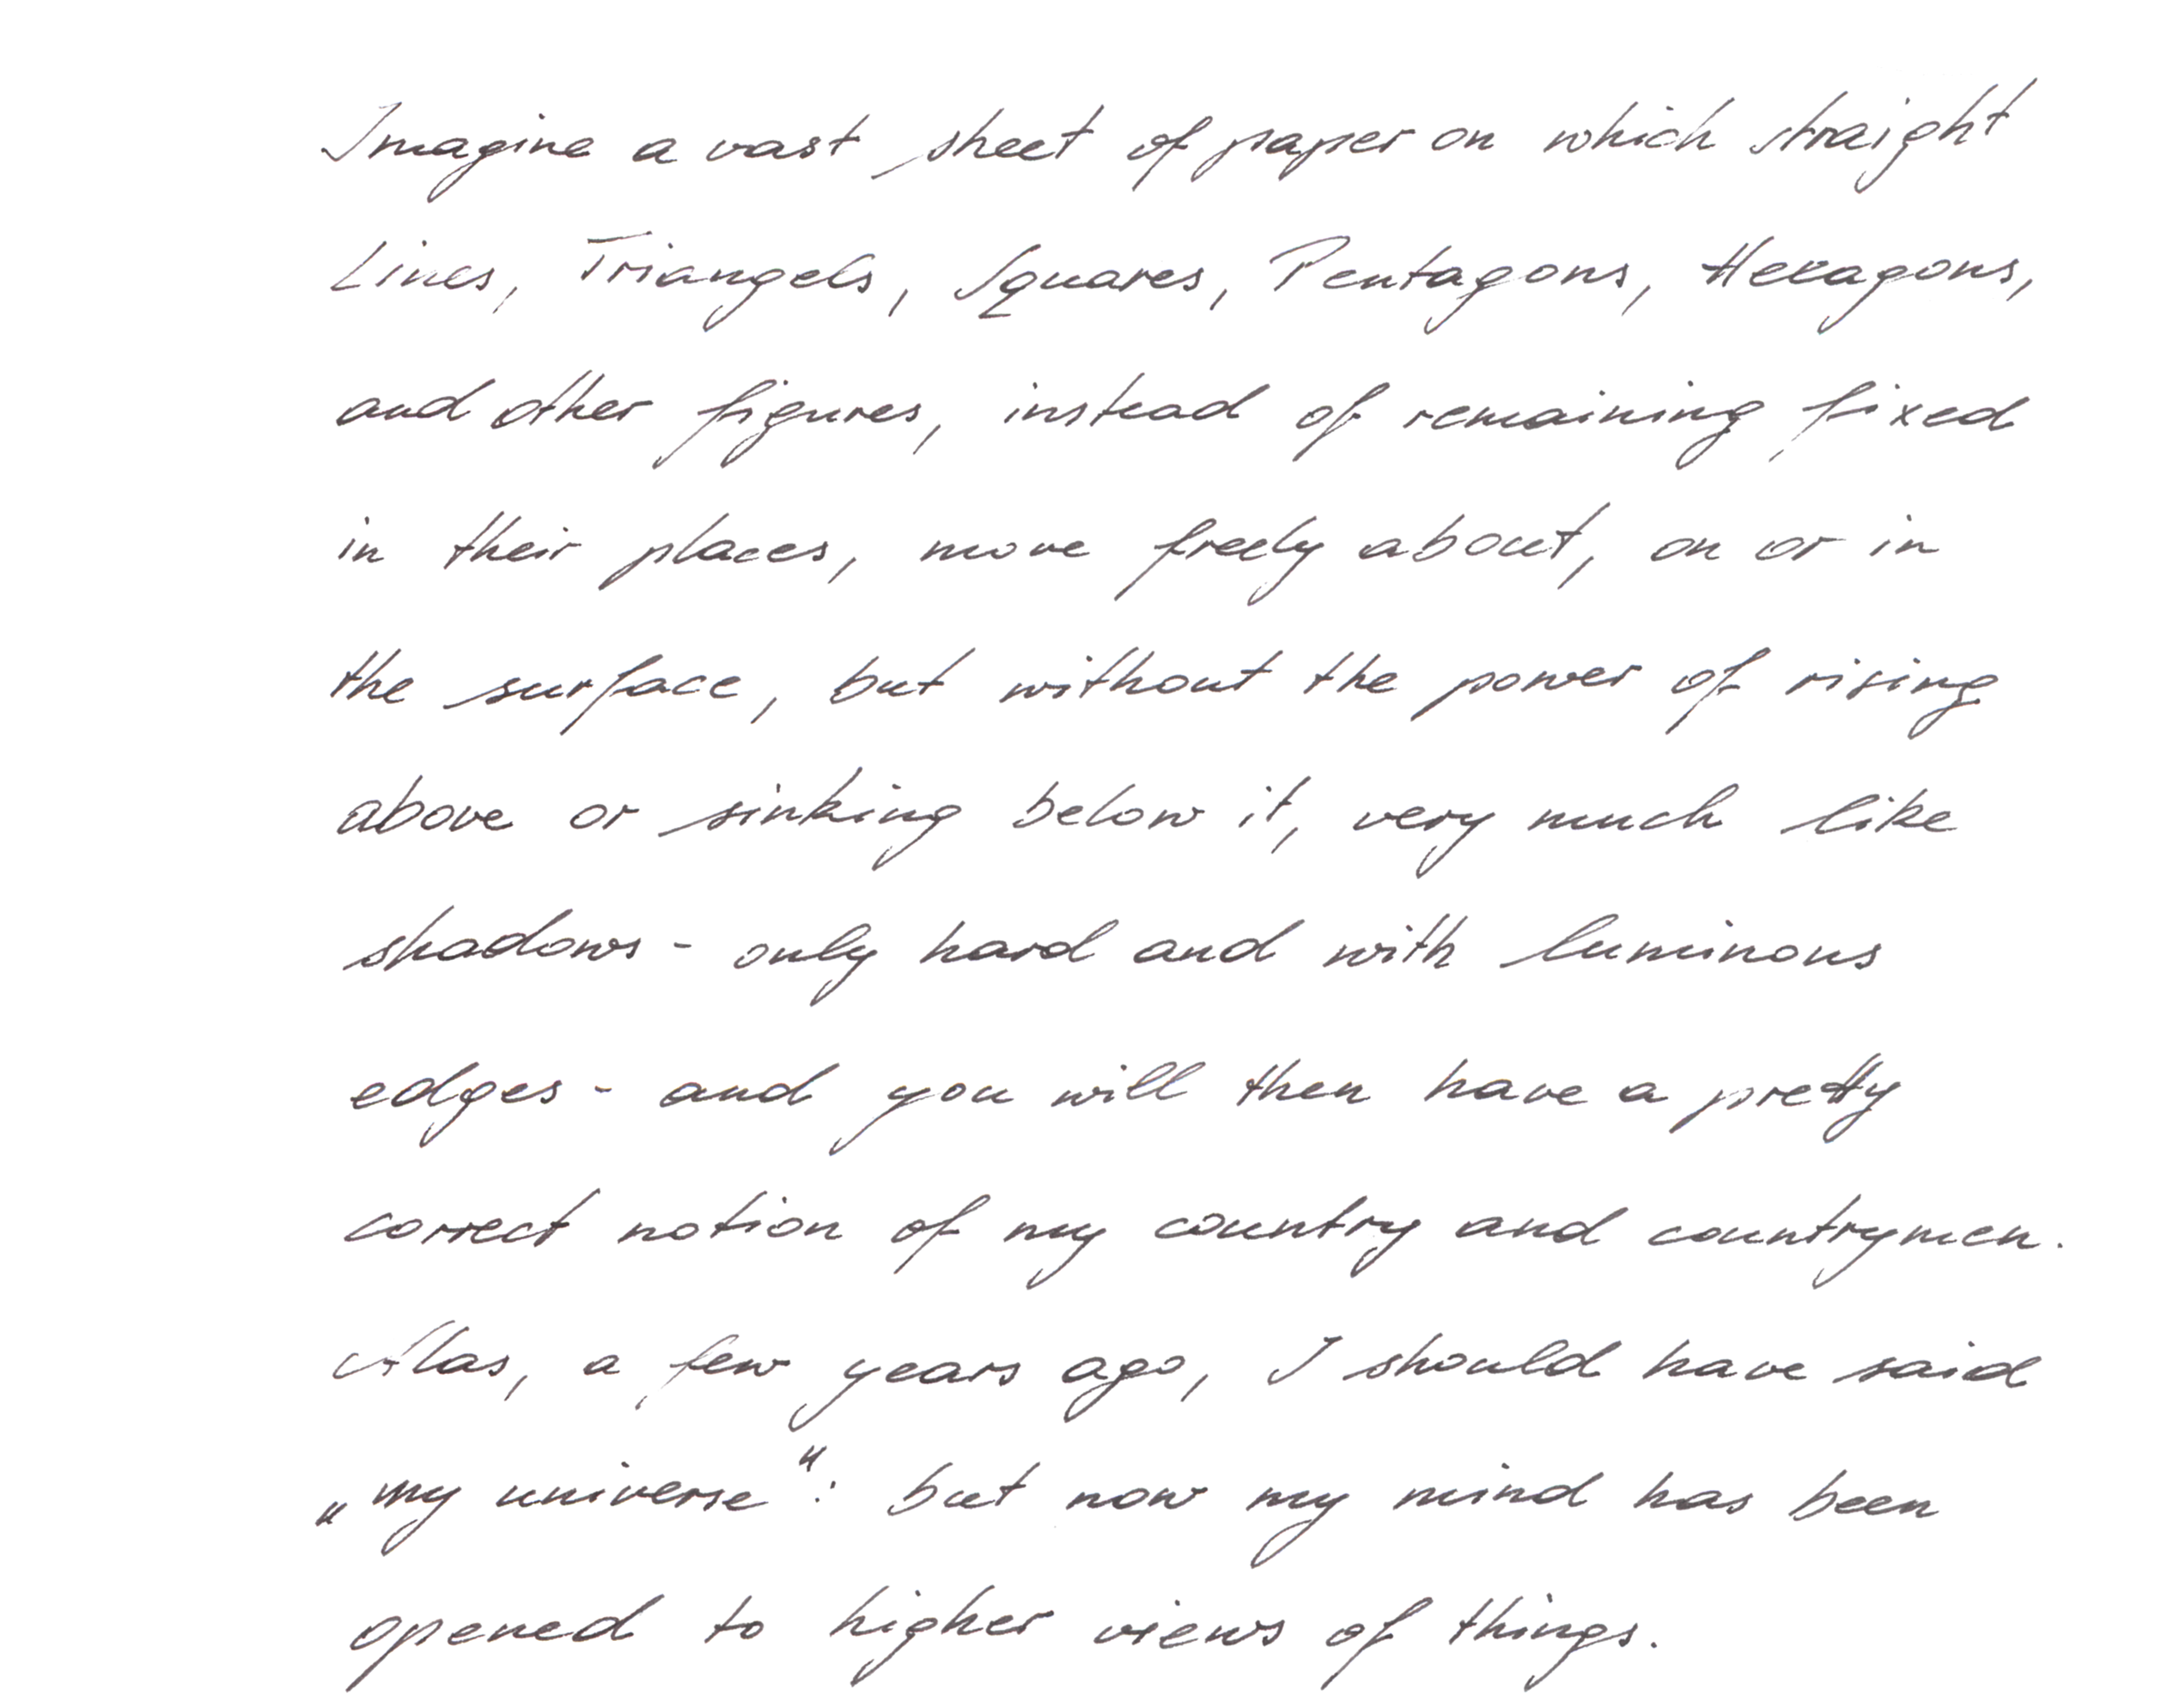 Imagine a vast sheet of paper on which straight
Lines, Triangels, Squares, Pentagons, Hexagons,
and other figures, instead of remaining fixed
in their places, move freely about, on or in
the surface, but without the power of rising
above or sinking below it, very much like
shadows - only hard and with luminous
edges - and you will then have a pretty
correct notion of my country and countrymen.
Alas, a few years ago, I should have said
„my universe“: but now my mind has been
opened to higher views of things.